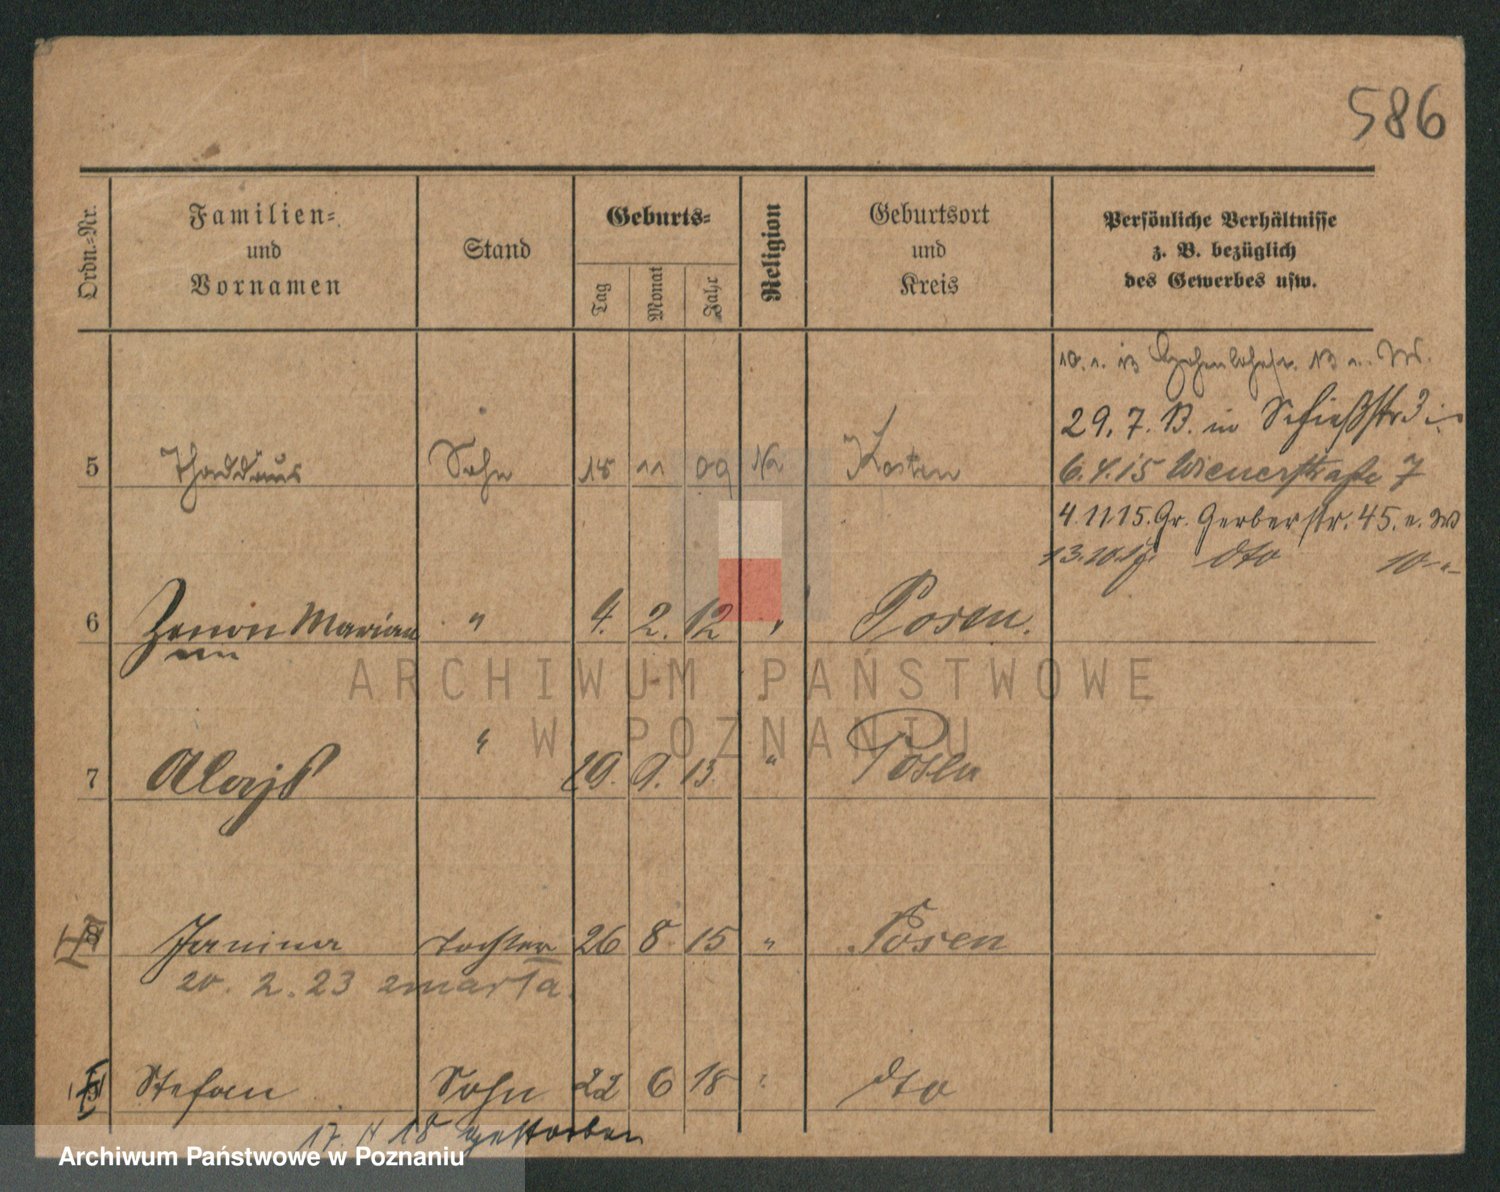 586
Ordn.-Nr.
Familien-
und
Vornamen
Stand
Geburts-
Tag
Monat
Jahr
Religion
Geburtsort
und
Kreis
Persönliche Verhältnisse
z. B. bezüglich
des Gewerbes usw.
10. 1. 13 Hohenlohestr. 13
29. 7. 13. in Schießstr 3
6. 4. 15 Wienerstraße 7
4. 11 15. Gr. Gerberstr. 45.
13. 10. dto 10
5 Thaddäus Sohn 18 11 09 Ka Kosten
6 Zenon Marian " 4. 2. 12 " Posen.
7 Aloys " 29. 9. 13 " Posen
8 Janina Tochter 26 8. 15 " Posen
20. 2. 23 zmarła.
Stefan Sohn 22 6 18 " dto
17. 18 gestorben
ARCHIWUM PAŃSTWOWE
W POZNANIU
Archiwum Państwowe w Poznaniu